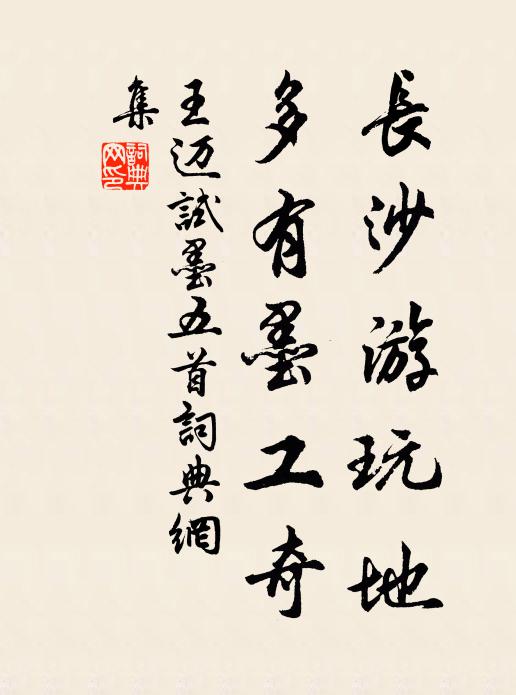 長沙游玩地
多有墨工奇
王迈試墨五首詞典網
集
詞典網印